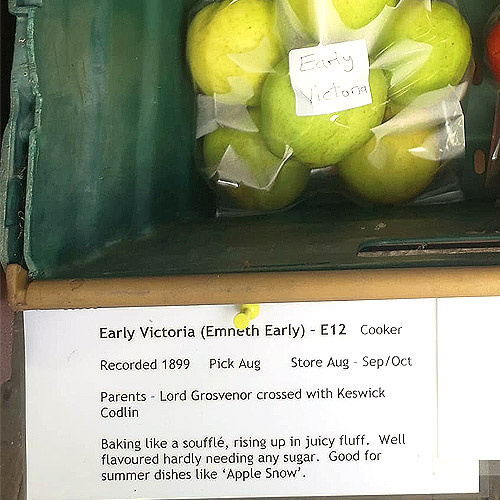 Early
Victoria
Early Victoria (Emneth Early) - E12 Cooker
Recorded 1899 Pick Aug Store Aug - Sep/Oct
Parents - Lord Grosvenor crossed with Keswick
Codlin
Baking like a soufflé, rising up in juicy fluff. Well
flavoured hardly needing any sugar. Good for
summer dishes like ‘Apple Snow’.